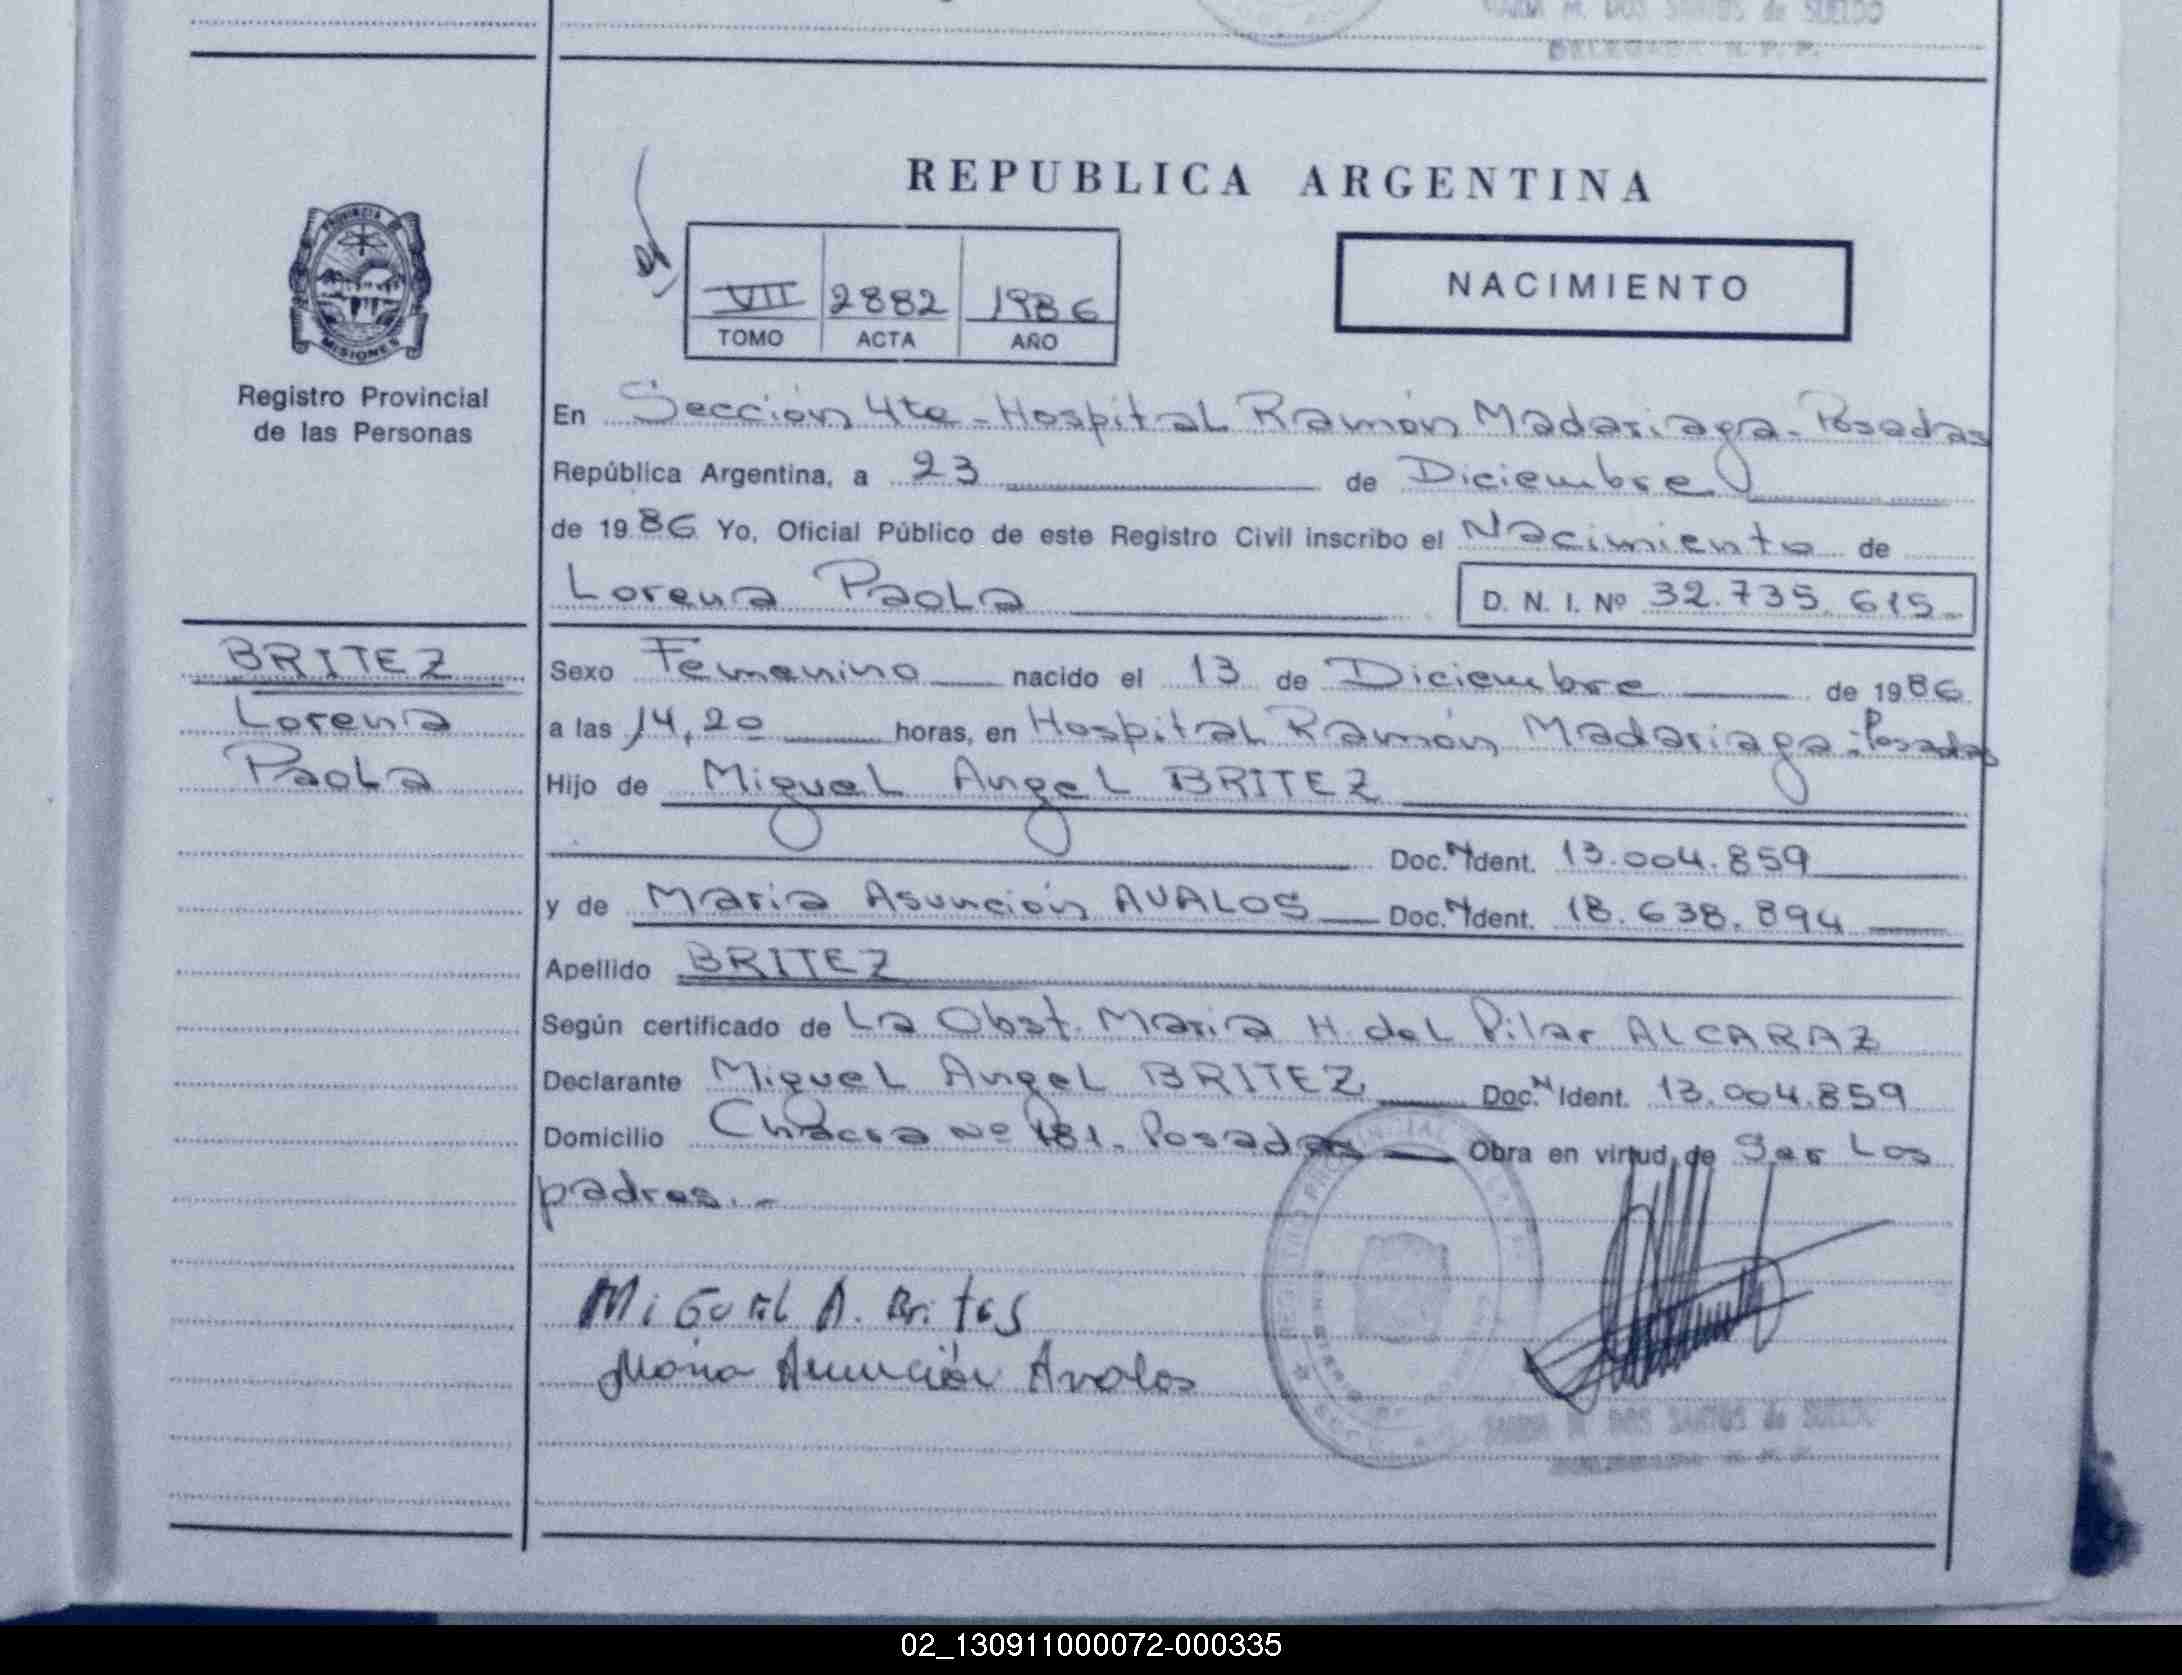 DOS SANTOS de SUELDO
REPUBLICA ARGENTINA
PROVINCIA DE
MISIONES
VII 2882 1986
TOMO ACTA AÑO
NACIMIENTO
Registro Provincial
de las Personas
En Sección 4ta - Hospital Ramón Madariaga - Posadas
República Argentina, a 23 de Diciembre
de 1986 Yo, Oficial Público de este Registro Civil inscribo el Nacimiento de
Lorena Paola D. N. I. Nº 32.735.615.-
BRITEZ
Lorena
Paola
Sexo Femenino nacido el 13 de Diciembre de 1986
a las 14,20 horas, en Hospital Ramón Madariaga - Posadas
Hijo de Miguel Angel BRITEZ
Doc. N Ident. 13.004.859
y de Maria Asunción AVALOS Doc. N Ident. 18.638.894
Apellido BRITEZ
Según certificado de La Obst. Maria H. del Pilar ALCARAZ
Declarante Miguel Angel BRITEZ Doc. N Ident. 13.004.859
Domicilio Chacra Nº 181. Posadas Obra en virtud de Ser Los
padres.-
MiGuel A. Brites
Maria Asunción Avalos
DOS SANTOS de SUELDO
02_130911000072-000335